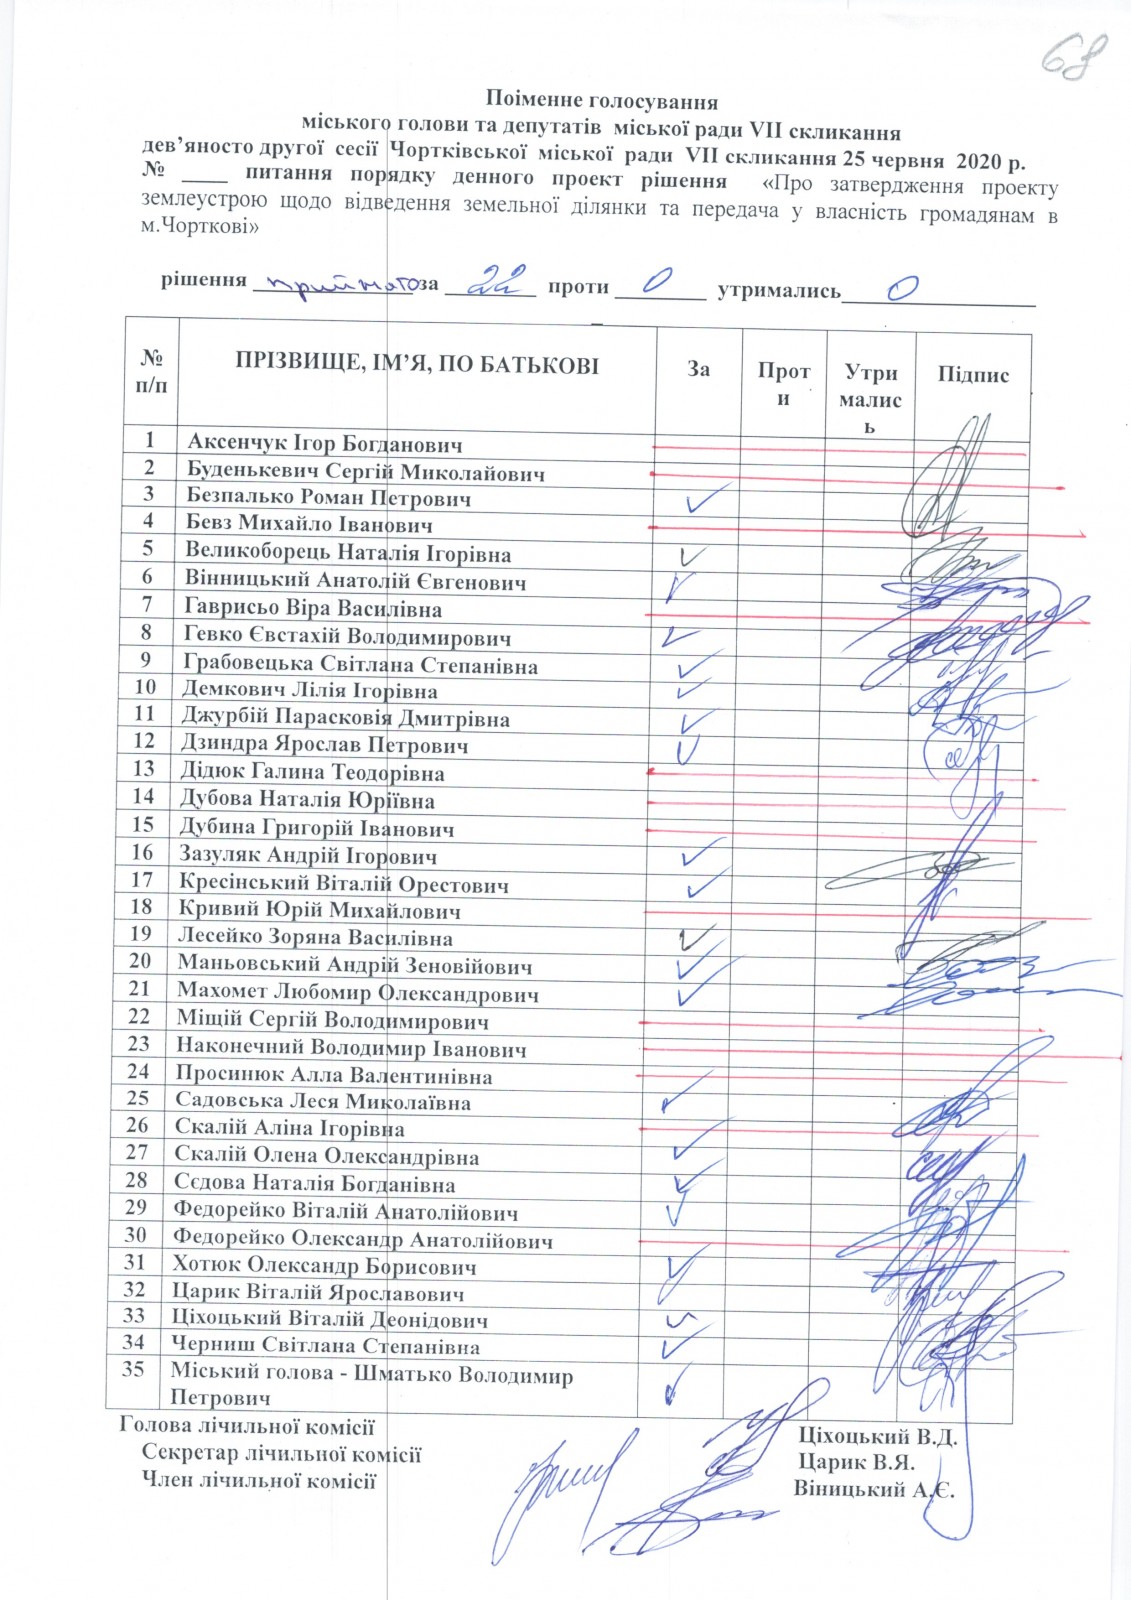 68
Поіменне голосування
міського голови та депутатів міської ради VII скликання
дев’яносто другої сесії Чортківської міської ради VII скликання 25 червня 2020 р.
№ ____ питання порядку денного проект рішення «Про затвердження проекту
землеустрою щодо відведення земельної ділянки та передача у власність громадянам в
м.Чорткові»
рішення прийнято за 22 проти 0 утримались 0
№ п/п ПРІЗВИЩЕ, ІМ’Я, ПО БАТЬКОВІ За Прот и Утри малис ь Підпис
1 Аксенчук Ігор Богданович
2 Буденькевич Сергій Миколайович
3 Безпалько Роман Петрович
4 Бевз Михайло Іванович
5 Великоборець Наталія Ігорівна
6 Вінницький Анатолій Євгенович
7 Гаврисьо Віра Василівна
8 Гевко Євстахій Володимирович
9 Грабовецька Світлана Степанівна
10 Демкович Лілія Ігорівна
11 Джурбій Парасковія Дмитрівна
12 Дзиндра Ярослав Петрович
13 Дідюк Галина Теодорівна
14 Дубова Наталія Юріївна
15 Дубина Григорій Іванович
16 Зазуляк Андрій Ігорович
17 Кресінський Віталій Орестович
18 Кривий Юрій Михайлович
19 Лесейко Зоряна Василівна
20 Маньовський Андрій Зеновійович
21 Махомет Любомир Олександрович
22 Міщій Сергій Володимирович
23 Наконечний Володимир Іванович
24 Просинюк Алла Валентинівна
25 Садовська Леся Миколаївна
26 Скалій Аліна Ігорівна
27 Скалій Олена Олександрівна
28 Сєдова Наталія Богданівна
29 Федорейко Віталій Анатолійович
30 Федорейко Олександр Анатолійович
31 Хотюк Олександр Борисович
32 Царик Віталій Ярославович
33 Ціхоцький Віталій Деонідович
34 Черниш Світлана Степанівна
35 Міський голова - Шматько Володимир
Петрович
Голова лічильної комісії Ціхоцький В.Д.
Секретар лічильної комісії Царик В.Я.
Член лічильної комісії Віницький А.Є.